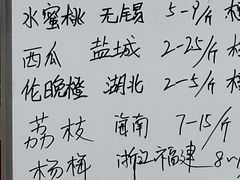 水蜜桃 无锡 5-9/斤
西瓜 盐城 2-25/斤
伦晚橙 湖北 2-5/斤
荔枝 海南 7-15/斤
杨梅 浙江福建 8